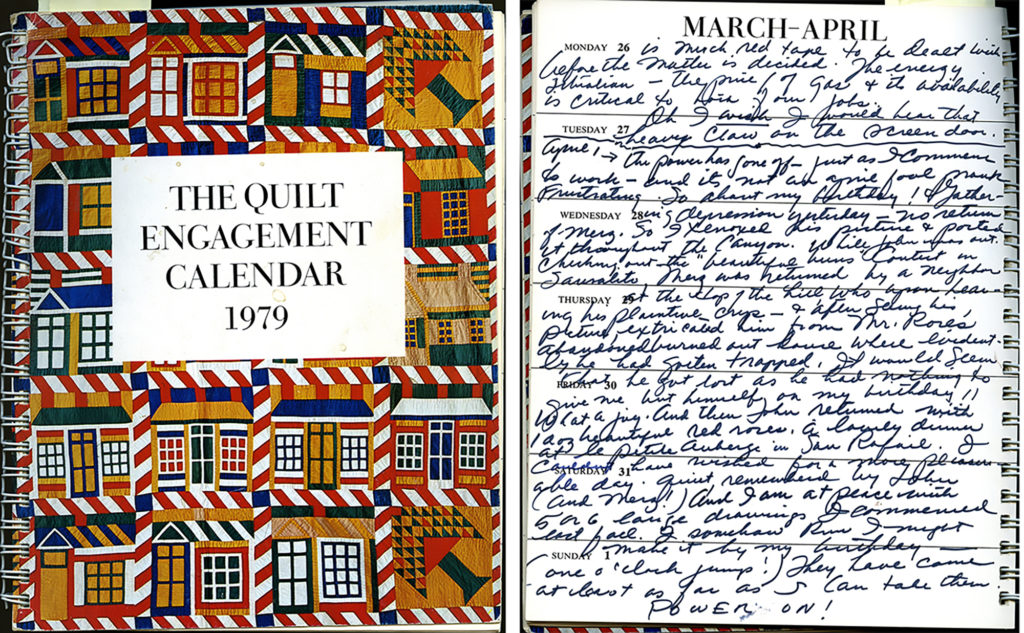 THE QUILT
ENGAGEMENT
CALENDAR
1979
MARCH–APRIL
MONDAY 26 is much red tape to be dealt with
before the matter is decided. The energy
situation – the price of gas & its availability
is critical to both your jobs.
Oh I wish I would hear that
TUESDAY 27 heavy claw on the screen door.
April 1 → the power has gone off – just as I commence
to work – and it's not an april fool prank
Frustrating. So about my birthday! & gather-
WEDNESDAY 28 ing depression yesterday – no return
of Merz. So I xeroxed his picture & posted
it throughout the Canyon. While John was out
checking out the "beautiful buns" contest in
Sausalito Merz was returned by a neighbor
THURSDAY 29 at the top of the hill who upon hear-
ing his plaintive cries – & after seeing his
picture, extricated him from Mr. Rose's
abandoned burned out house where evident-
ly he had gotten trapped. It would seem
FRIDAY 30 that he got lost as he had nothing to
give me but himself on my birthday!!
What a joy. And then John returned with
1 doz beautiful red roses. A lovely dinner
at Le Petite Auberge in San Rafael. I
SATURDAY 31 have wished for a more pleasur-
able day. Quiet remembered by John
(and Merz!) And I am at peace with
5 or 6 large drawings I commenced
last fall. I somehow knew I might
SUNDAY 1 make it by my birthday –
one o'clock jump! They have come
at least as far as I can take them
POWER ON!